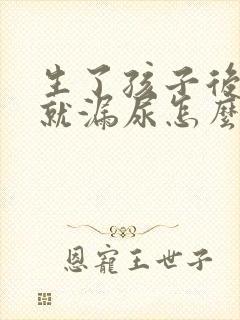 生了孩子後
就漏尿怎麼
恩寵王世子